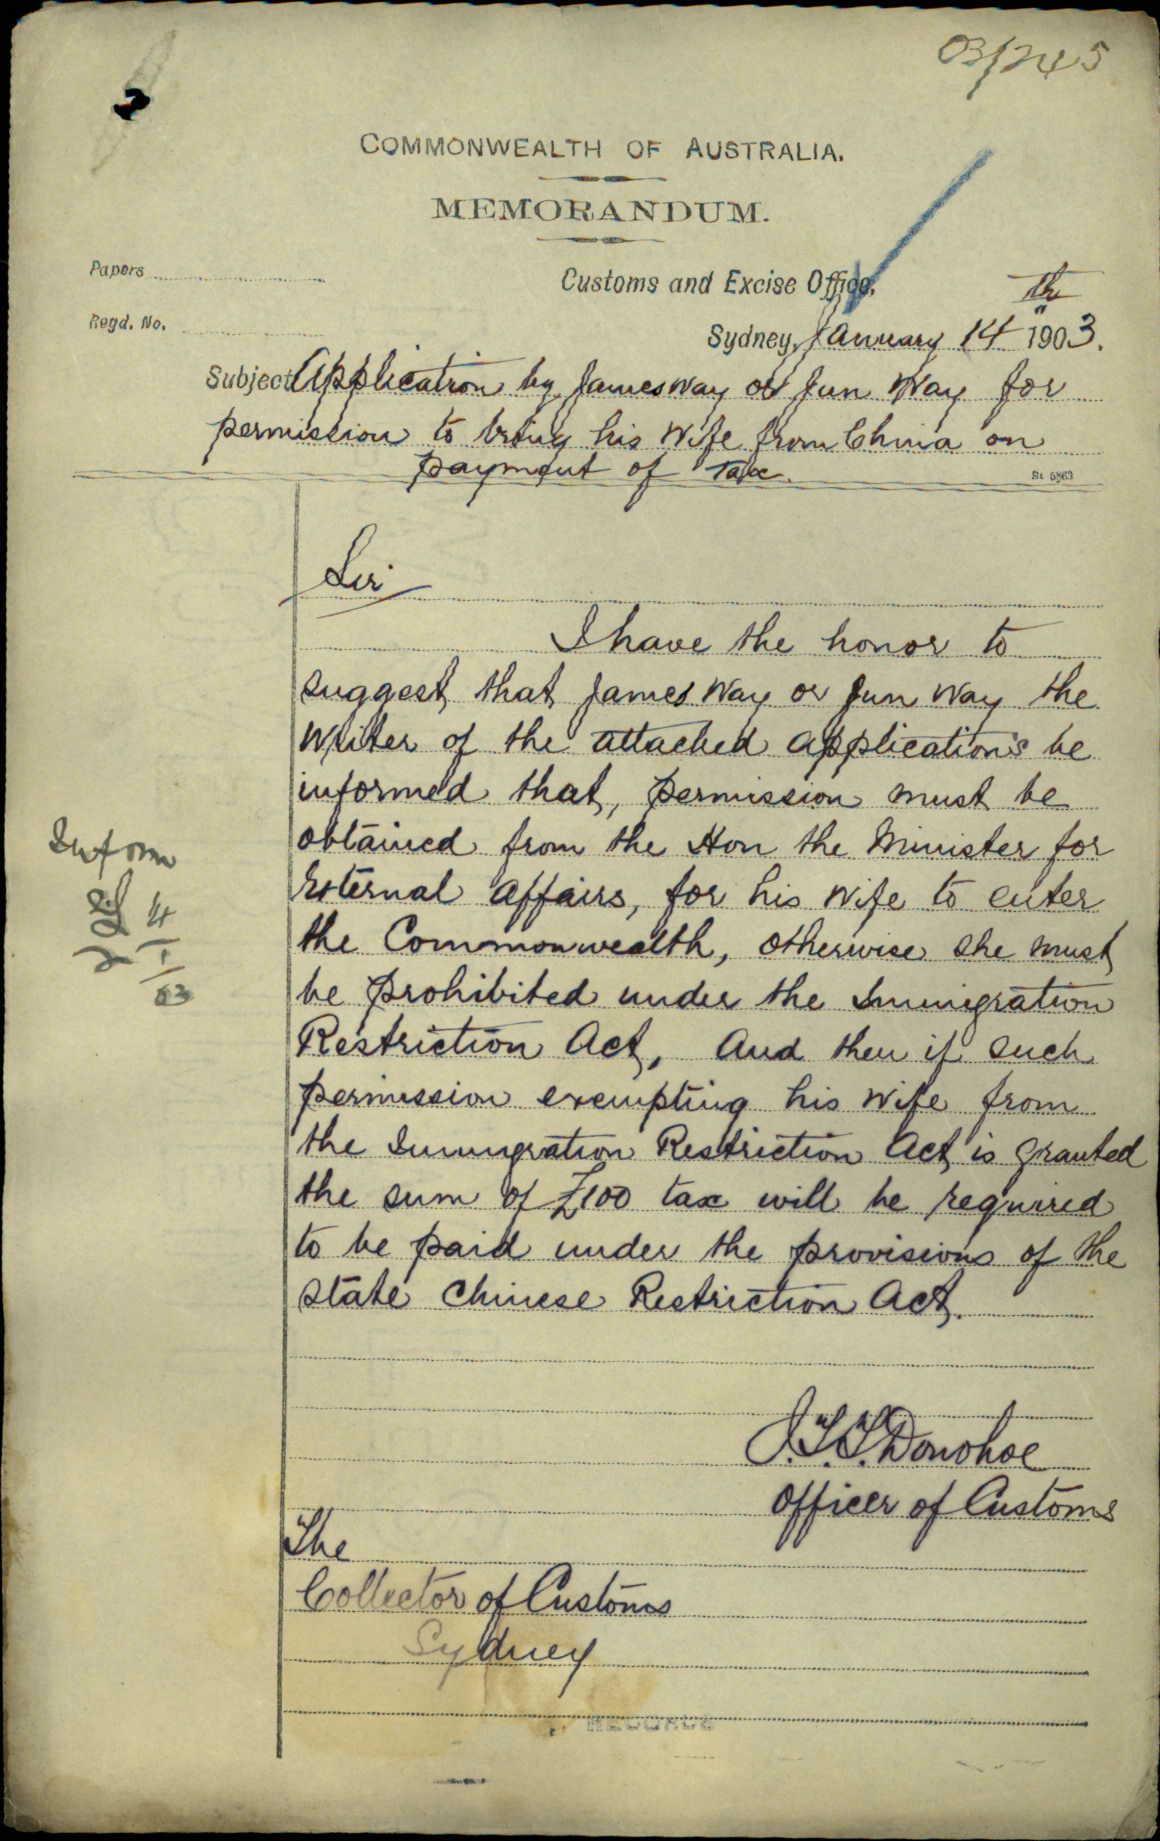 03/245
COMMONWEALTH OF AUSTRALIA.
MEMORANDUM.
Papers
Customs and Excise Office,
Regd. No.
Sydney, January 14th 1903.
Subject Application by James Way or Jun Way for
permission to bring his Wife from China on
payment of Tax.
St. 5863
Sir
I have the honor to
suggest that James Way or Jun Way the
Writer of the attached applications be
informed that, permission must be
obtained from the Hon the Minister for
External Affairs, for his Wife to enter
the Commonwealth, otherwise she must
be prohibited under the Immigration
Restriction Act, And then if such
permission exempting his Wife from
the Immigration Restriction Act is granted
the sum of £100 tax will be required
to be paid under the provisions of the
State Chinese Restriction Act.
Inform
14
1
03
J.T.T. Donohoe
Officer of Customs
The
Collector of Customs
Sydney